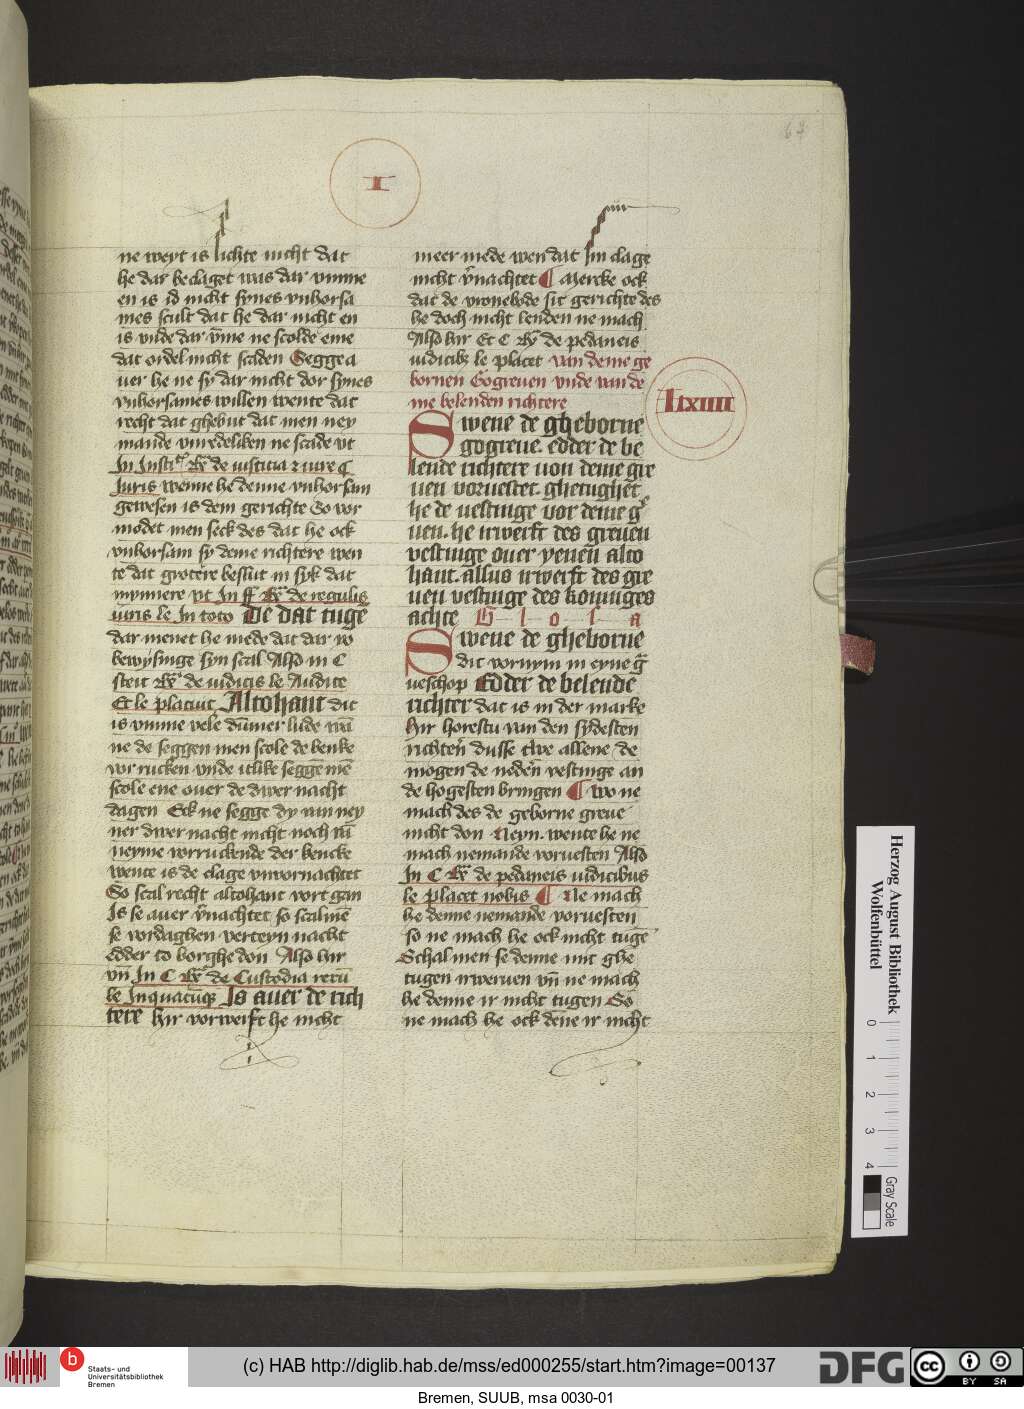 67
I
ne weyt is lichte nicht dat
he dar beclaget was dar vmme
en is id nicht synes vnhorsa
mes scult dat he dar nicht en
is vnde dar v̄me ne scolde eme
dat ordel nicht scaden Segge a
uer he ne sy dar nicht dor synes
vnhorsames willen wente dat
recht dat ghebut dat men ney
mande vnredeliken ne scade vt
In Instit̄ R̄ de iusticia ⁊ iure ¶
Iuris wenne he denne vnhorsam
gewesen is dem gerichte So vor
modet men seck des dat he ock
vnhorsam sy deme richtere wen
te dat grotere beslut in syk dat
mynnere vt In ff R̄ de regulis
iuris le In toto De dat tuge
dar menet he mede dat dar vo
bewysinge syn scal Also in C
steit R̄ de iudicis le Audite
Et le placuit Altohant dit
is vmme vele dūmer lude wā
ne de seggen men scole de benke
vor rucken vnde itlike seggē mē
scole ene ouer de dwer nacht
dagen Eck ne segge dy van ney
ner dwer nacht nicht noch vā
neyme vorruckende der bencke
wente is de clage vnvornachtet
So scal recht altohant vort gan
Is se auer v̄nachtet so scalmē
se vordaghen verteyn nacht
edder to borghe don Also hir
vn̄ In C R̄ de Custodia reru
le Inquacūq Is auer de rich
tere hir vorweist he nicht
meer mede wen dat Im clage
nicht v̄nachtet ¶ Mercke ock
dat de vronebode sit gerichte des
he doch nicht lenden ne mach
Also hir Et C R̄ de pedaneis
iudicib le placet van deme ge
bornen Gogreuen vnde van de
me belenden richtere
lxiiii
Swene de gheborne
gogreue. edder de be
lende richtere uon deme gre
uen voruestet. ghetughet
he de uestinge vor deme g
uen. he irwerft des greuen
vestinge ouer yeuen alto
hant. allus irwerft des gre
uen vestinge des koninges
achte Glosa
Sweue de gheborne
dit vornym in eyne g
ueschop Edder de belende
richter dat is in der marke
hir horestu van den sydesten
richten dusse twe allene de
mogen de noden vestinge an
de hogesten bringen ¶ wo ne
mach des de geborne greue
nicht don Neyn. wente he ne
mach nemande voruesten Also
In C R̄ de pedaneis iudicibus
le placet nobis ¶ Ne mach
he denne nemande voruesten
so ne mach he ock nicht tuge
Schal men se denne mit ghe
tugen irweruen vn̄ ne mach
he denne ir nicht tugen So
ne mach he ock dēne ir nicht
Herzog August Bibliothek
Wolfenbüttel
0 1 2 3 4
Gray Scale
b Staats- und
Universitätsbibliothek
Bremen
(c) HAB http://diglib.hab.de/mss/ed000255/start.htm?image=00137
DFG
cc BY SA
Bremen, SUUB, msa 0030-01